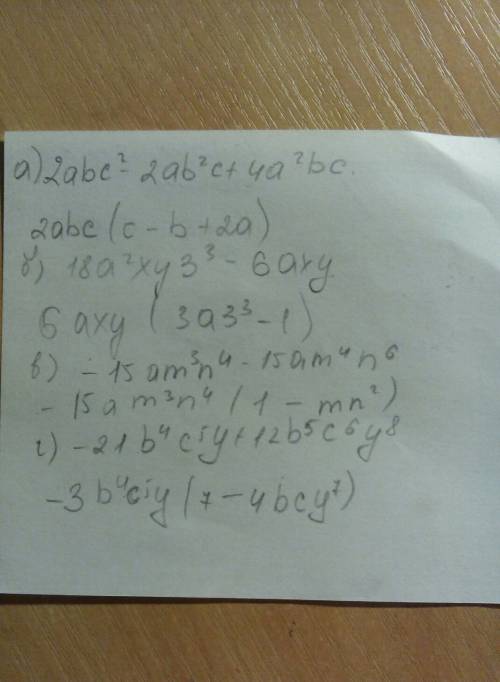 а) 2abc² - 2ab²c + 4a²bc.
2abc (c - b + 2a)
б) 18a²xy3³ - 6axy
6axy (3a3³ - 1)
в) - 15am³n⁴ - 15am⁴n⁶
- 15am³n⁴ (1 - mn²)
г) - 21b⁴c⁵y + 12b⁵c⁶y⁸
- 3b⁴c⁵y (7 - 4bcy⁷)